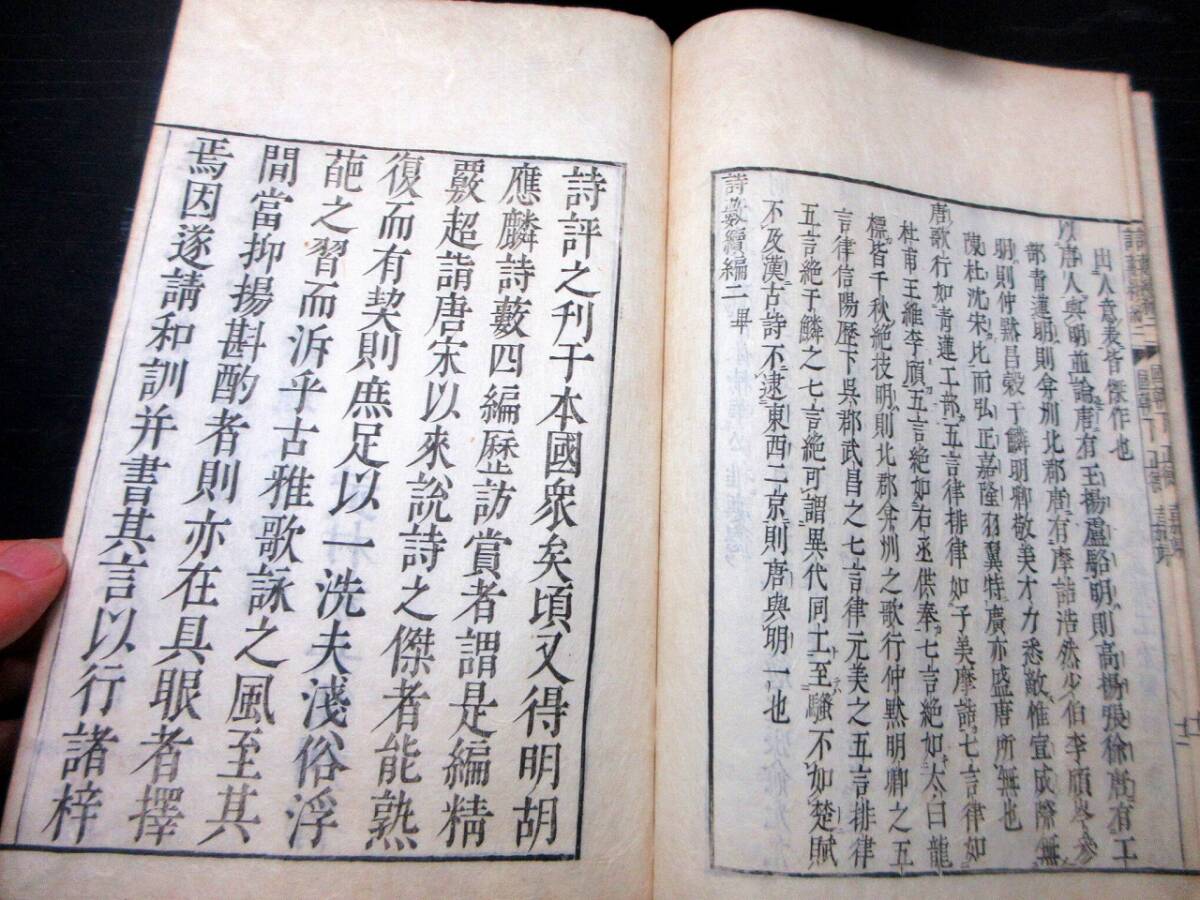 出人意表皆傑作也
以唐人與明並論唐有王楊盧駱明則高楊張徐唐有工
部青蓮明則弇州北郡唐有摩詰浩然少伯李頎岑參
明則仲默昌穀于鱗明卿敬美才力悉敵惟宣成際無
陳杜沈宋比而弘正嘉隆羽翼特廣亦盛唐所無也
唐歌行如青蓮工部五言律排律如子美摩詰七言律如
杜甫王維李頎五言絕如右丞供奉七言絕如太白龍
標皆千秋絕技明則北郡弇州之歌行仲默明卿之五
言律信陽歷下吳郡武昌之七言律元美之五言排律
五言絕于鱗之七言絕可謂異代同工至騷不如楚賦
不及漢古詩不逮東西二京則唐與明一也
詩藪續編二畢
詩評之刋于本國衆矣頃又得明胡
應麟詩藪四編歷訪賞者謂是編精
覈超詣唐宋以來說詩之傑者能熟
復而有契則庶足以一洗夫淺俗浮
葩之習而泝乎古雅歌詠之風至其
間當抑揚斟酌者則亦在具眼者擇
焉因遂請和訓并書其言以行諸梓